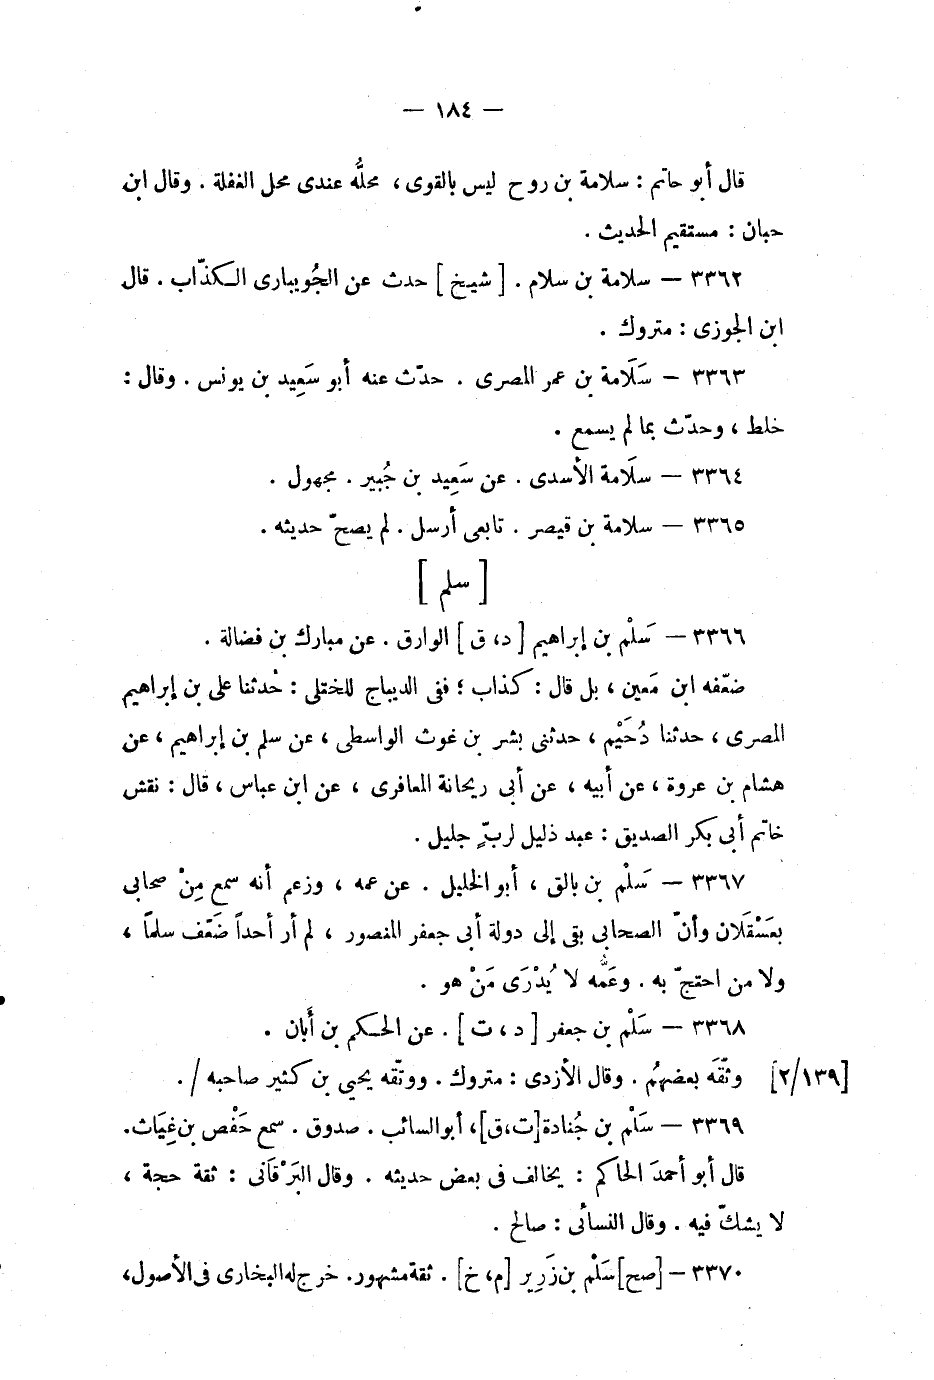 — ١٨٤ —
قال أبو حاتم : سلامة بن روح ليس بالقوى ، محلُّه عندى محل الغفلة . وقال ابن
حبان : مستقيم الحديث .
٣٣٦٢ — سلامة بن سلام . [ شيخ ] حدث عن الجُويبارى الكذّاب . قال
ابن الجوزى : متروك .
٣٣٦٣ — سَلَامة بن عمر المصرى . حدّث عنه أبو سَعِيد بن يونس . وقال :
خلط ، وحدّث بما لم يسمع .
٣٣٦٤ — سلَامة الأسدى . عن سَعِيد بن جُبير . مجهول .
٣٣٦٥ — سلامة بن قيصر . تابعى أرسل . لم يصحّ حديثه .
[ سلم ]
٣٣٦٦ — سَلْم بن إبراهيم [ د ، ق ] الوارق . عن مبارك بن فضالة .
ضعّفه ابن مَعين ، بل قال : كذاب ؛ ففى الديباج للختلى : حْدثنا على بن إبراهيم
المصرى ، حدثنا دُحَيْم ، حدثنى بشر بن غوث الواسطى ، عن سلم بن إبراهيم ، عن
هشام بن عروة ، عن أبيه ، عن أبى ريحانة المعافرى ، عن ابن عباس ، قال : نقش
خاتم أبى بكر الصديق : عبد ذليل لربٍّ جليل .
٣٣٦٧ — سَلْم بن بالق ، أبو الخليل . عن عمه ، وزعم أنه سمع مِنْ صحابى
بعَسْقَلان وأنّ الصحابى بقى إلى دولة أبى جعفر المنصور ، لم أر أحداً ضَعّف سلماً ،
ولا من احتجّ به . وعَمّه لا يُدْرَى مَنْ هو .
٣٣٦٨ — سَلْم بن جعفر [ د ، ت ] . عن الحكم بن أَبان .
وثّقَه بعضهُم . وقال الأزدى : متروك . ووثّقه يحيى بن كثير صاحبه / . [٢/١٣٩]
٣٣٦٩ — سَلْم بن جُنادة [ت،ق] ، أبو السائب . صدوق . سمع حَفْص بن غِيَاث.
قال أبو أحمدَ الحاكم : يخالف فى بعض حديثه . وقال البَرْقَانى : ثقة حجة ،
لا يشكّ فيه . وقال النسائى : صالح .
٣٣٧٠ — [صح] سَلْم بن زَرِير [م، خ] . ثقة مشهور. خرج له البخارى فى الأصول،